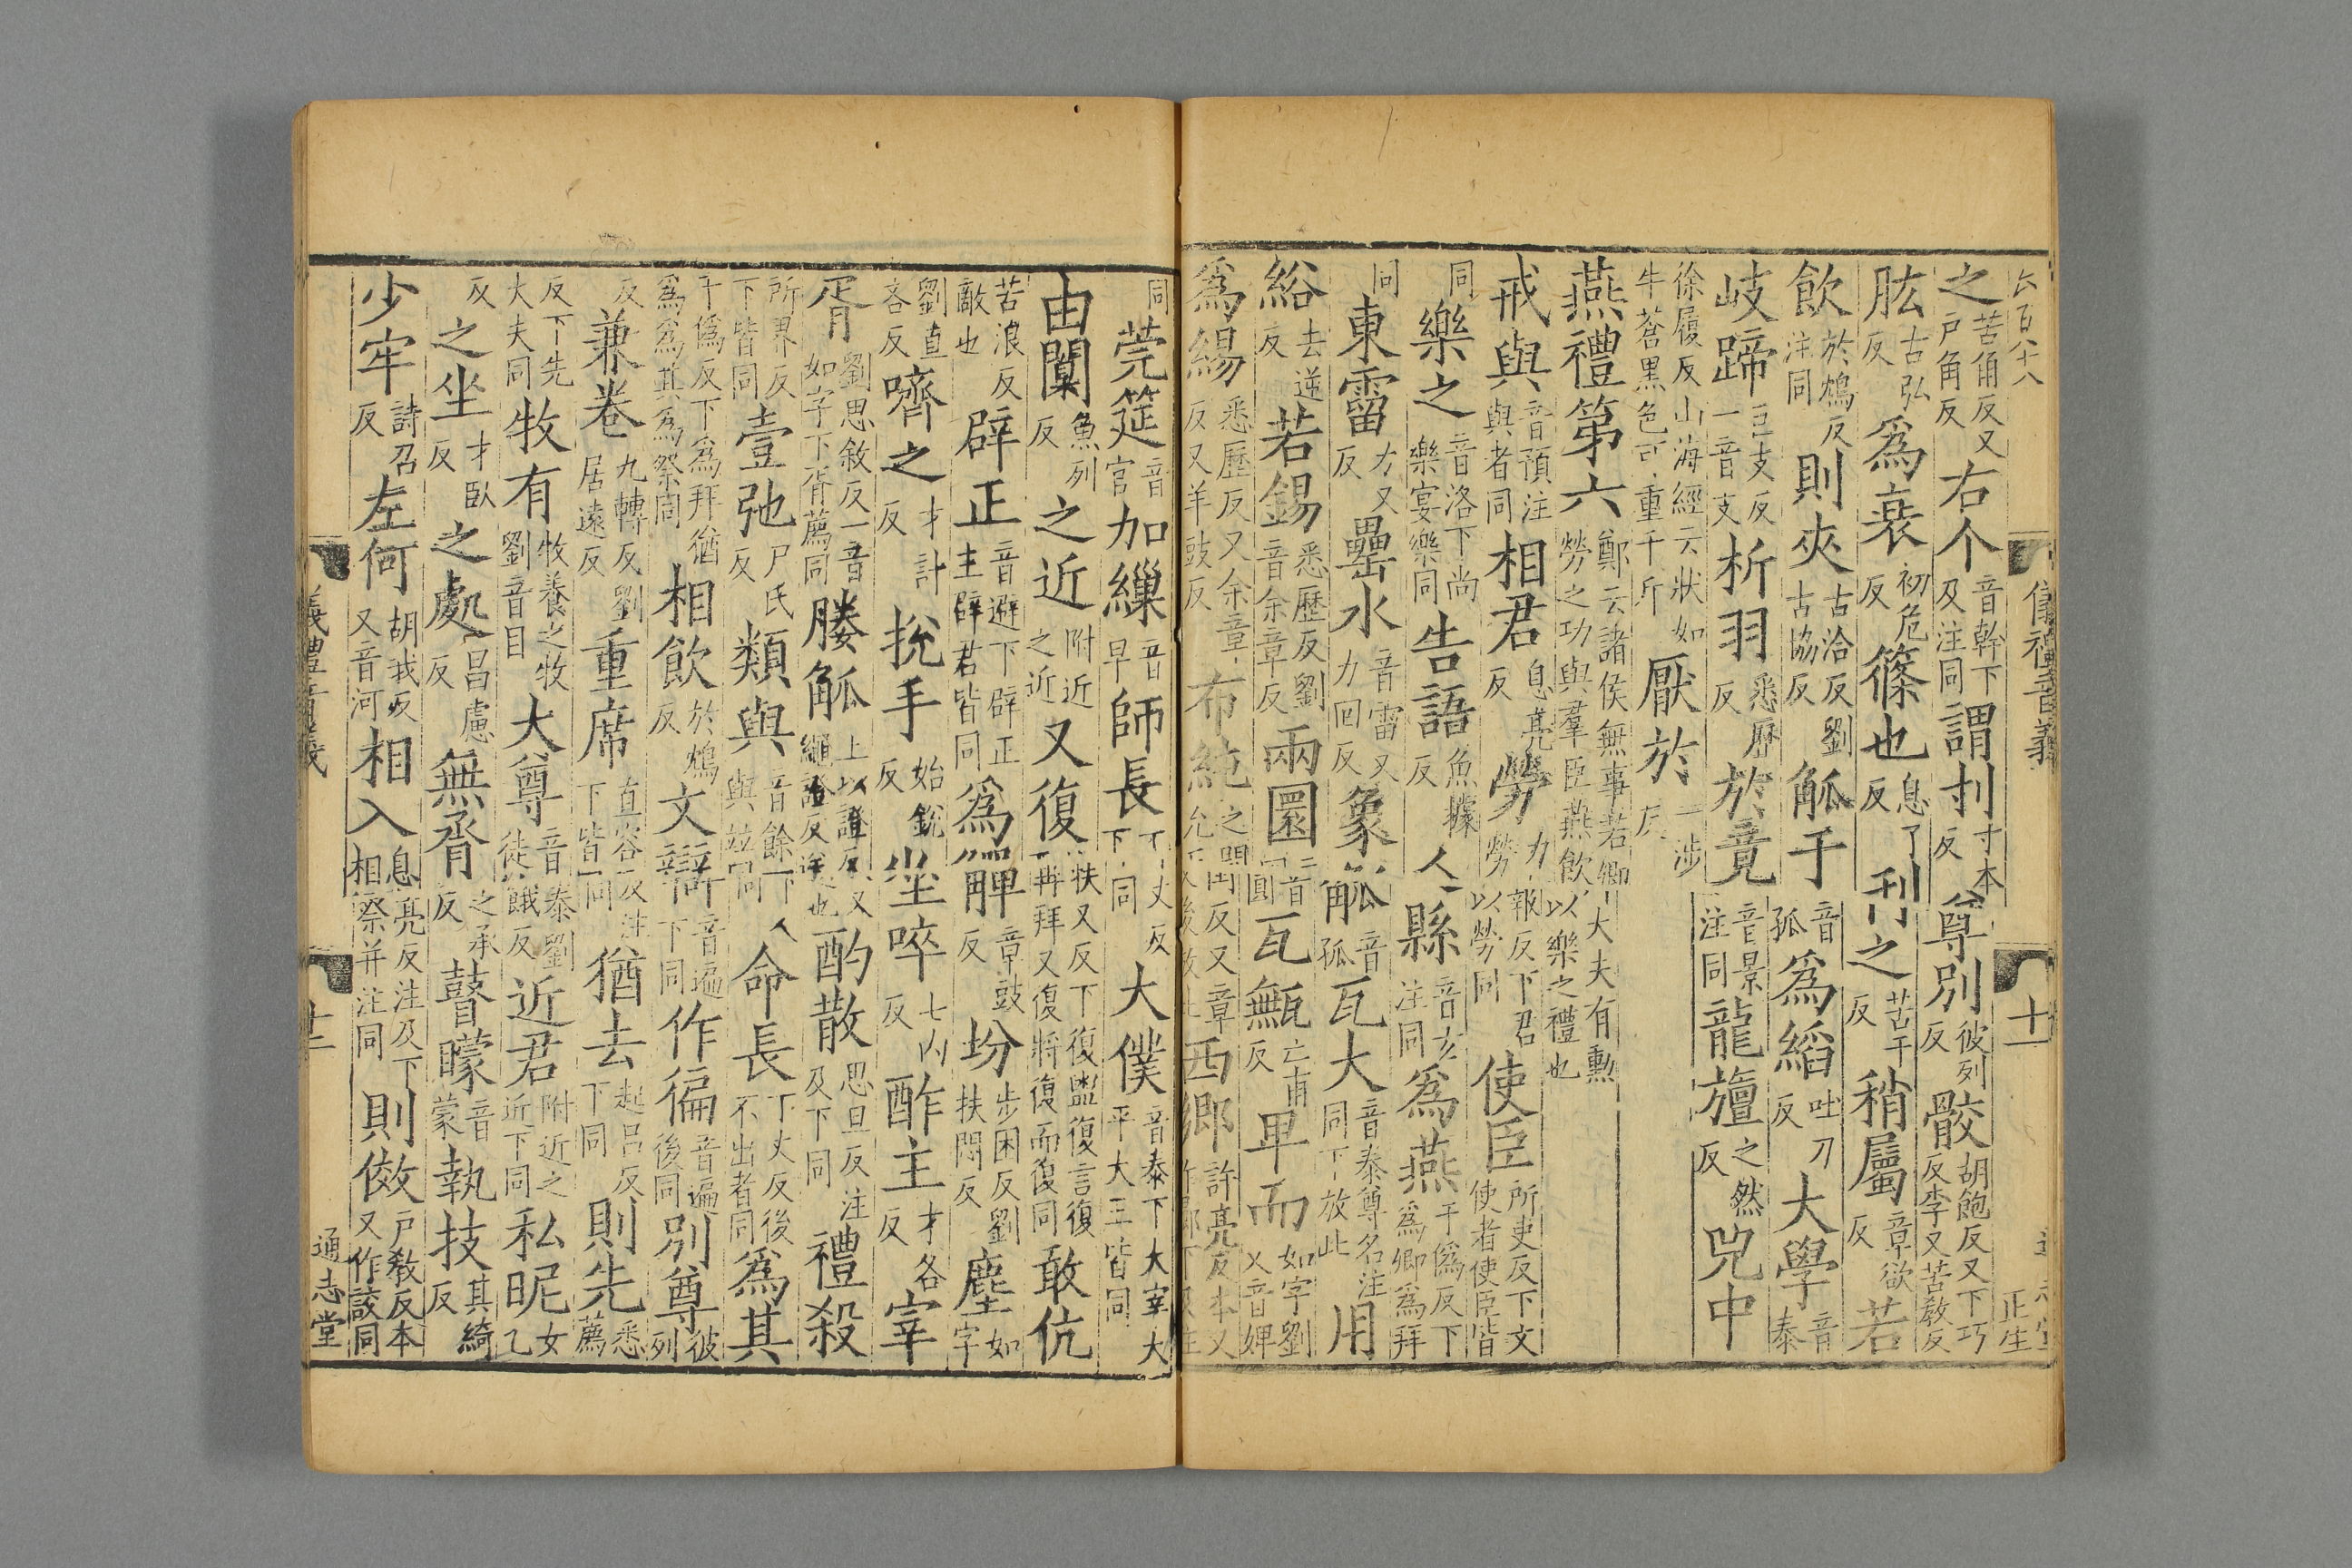 之苦角反又戶角反右个音幹下及注同謂刌寸本反尊別彼列反骹胡飽反又下巧反李又苦敎反
肱古弘反爲衰初危反篠也息了反刊之苦干反稍屬章欲反若
飲於鴆反注同則夾古洽反劉古協反觚手音孤爲縚吐刀反大學音泰
岐蹄巨支反一音支析羽悉歷反於竟音景注同龍旜之然反兕中
徐履反山海經云狀如牛蒼黑色可重千斤厭於一涉反
燕禮第六鄭云諸侯無事若卿大夫有勳勞之功與羣臣燕飲以樂之禮也
戒與音預注與者同相君息亮反勞力報反下君勞以勞同使臣所吏反下文使者使臣皆
同樂之音洛下尚樂宴樂同告語魚據反人縣音玄注同爲燕于僞反下爲卿爲拜
同東霤力又反罍水音雷又力回反象觚音孤瓦大音泰尊名注同下放此用
綌去逆反若錫悉歷反劉音余章反兩圜音圓瓦甒亡甫反卑而如字劉又音婢
爲緆悉歷反又余章反又羊豉反布純之閏反又章允反西鄉許亮反本又
儀禮音義
十一
同莞筵音官加繅音早師長丁丈反下同大僕音泰下大宰大平大王皆同
由闑魚列反之近附近之近又復扶又反下復盥復言復再拜又復將復而復同敢伉
苦浪反敵也辟正音避下辟正主辟君皆同爲觶章豉反坋步困反劉扶悶反塵如字
劉直吝反嚌之才計反挩手始銳反坐啐七內反酢主才各反宰
胥劉思敘反一音如字下胥薦同媵觚上以證反又繩證反送也酌散思旦反注及下同禮殺
所界反下皆同壹弛尸氏反類與音餘下與竝同人命長丁丈反後不出者同爲其
于僞反下爲拜猶爲爲其爲祭同相飲於鴆反文辯音遍下同作徧音遍後同別尊彼列
反兼卷九轉反劉居遠反重席直容反注下皆同猶去起呂反下同則先悉薦
反下先大夫同牧有牧養之牧劉音目大尊音泰劉徒餓反近君附近之近下同私昵女乙
反之坐才臥反之處昌慮反無脀之承反瞽矇音蒙執技其綺反
少牢詩召反左何胡我反又音河相入息亮反注及下相祭并注同則傚戶敎反本又作詨同
通志堂